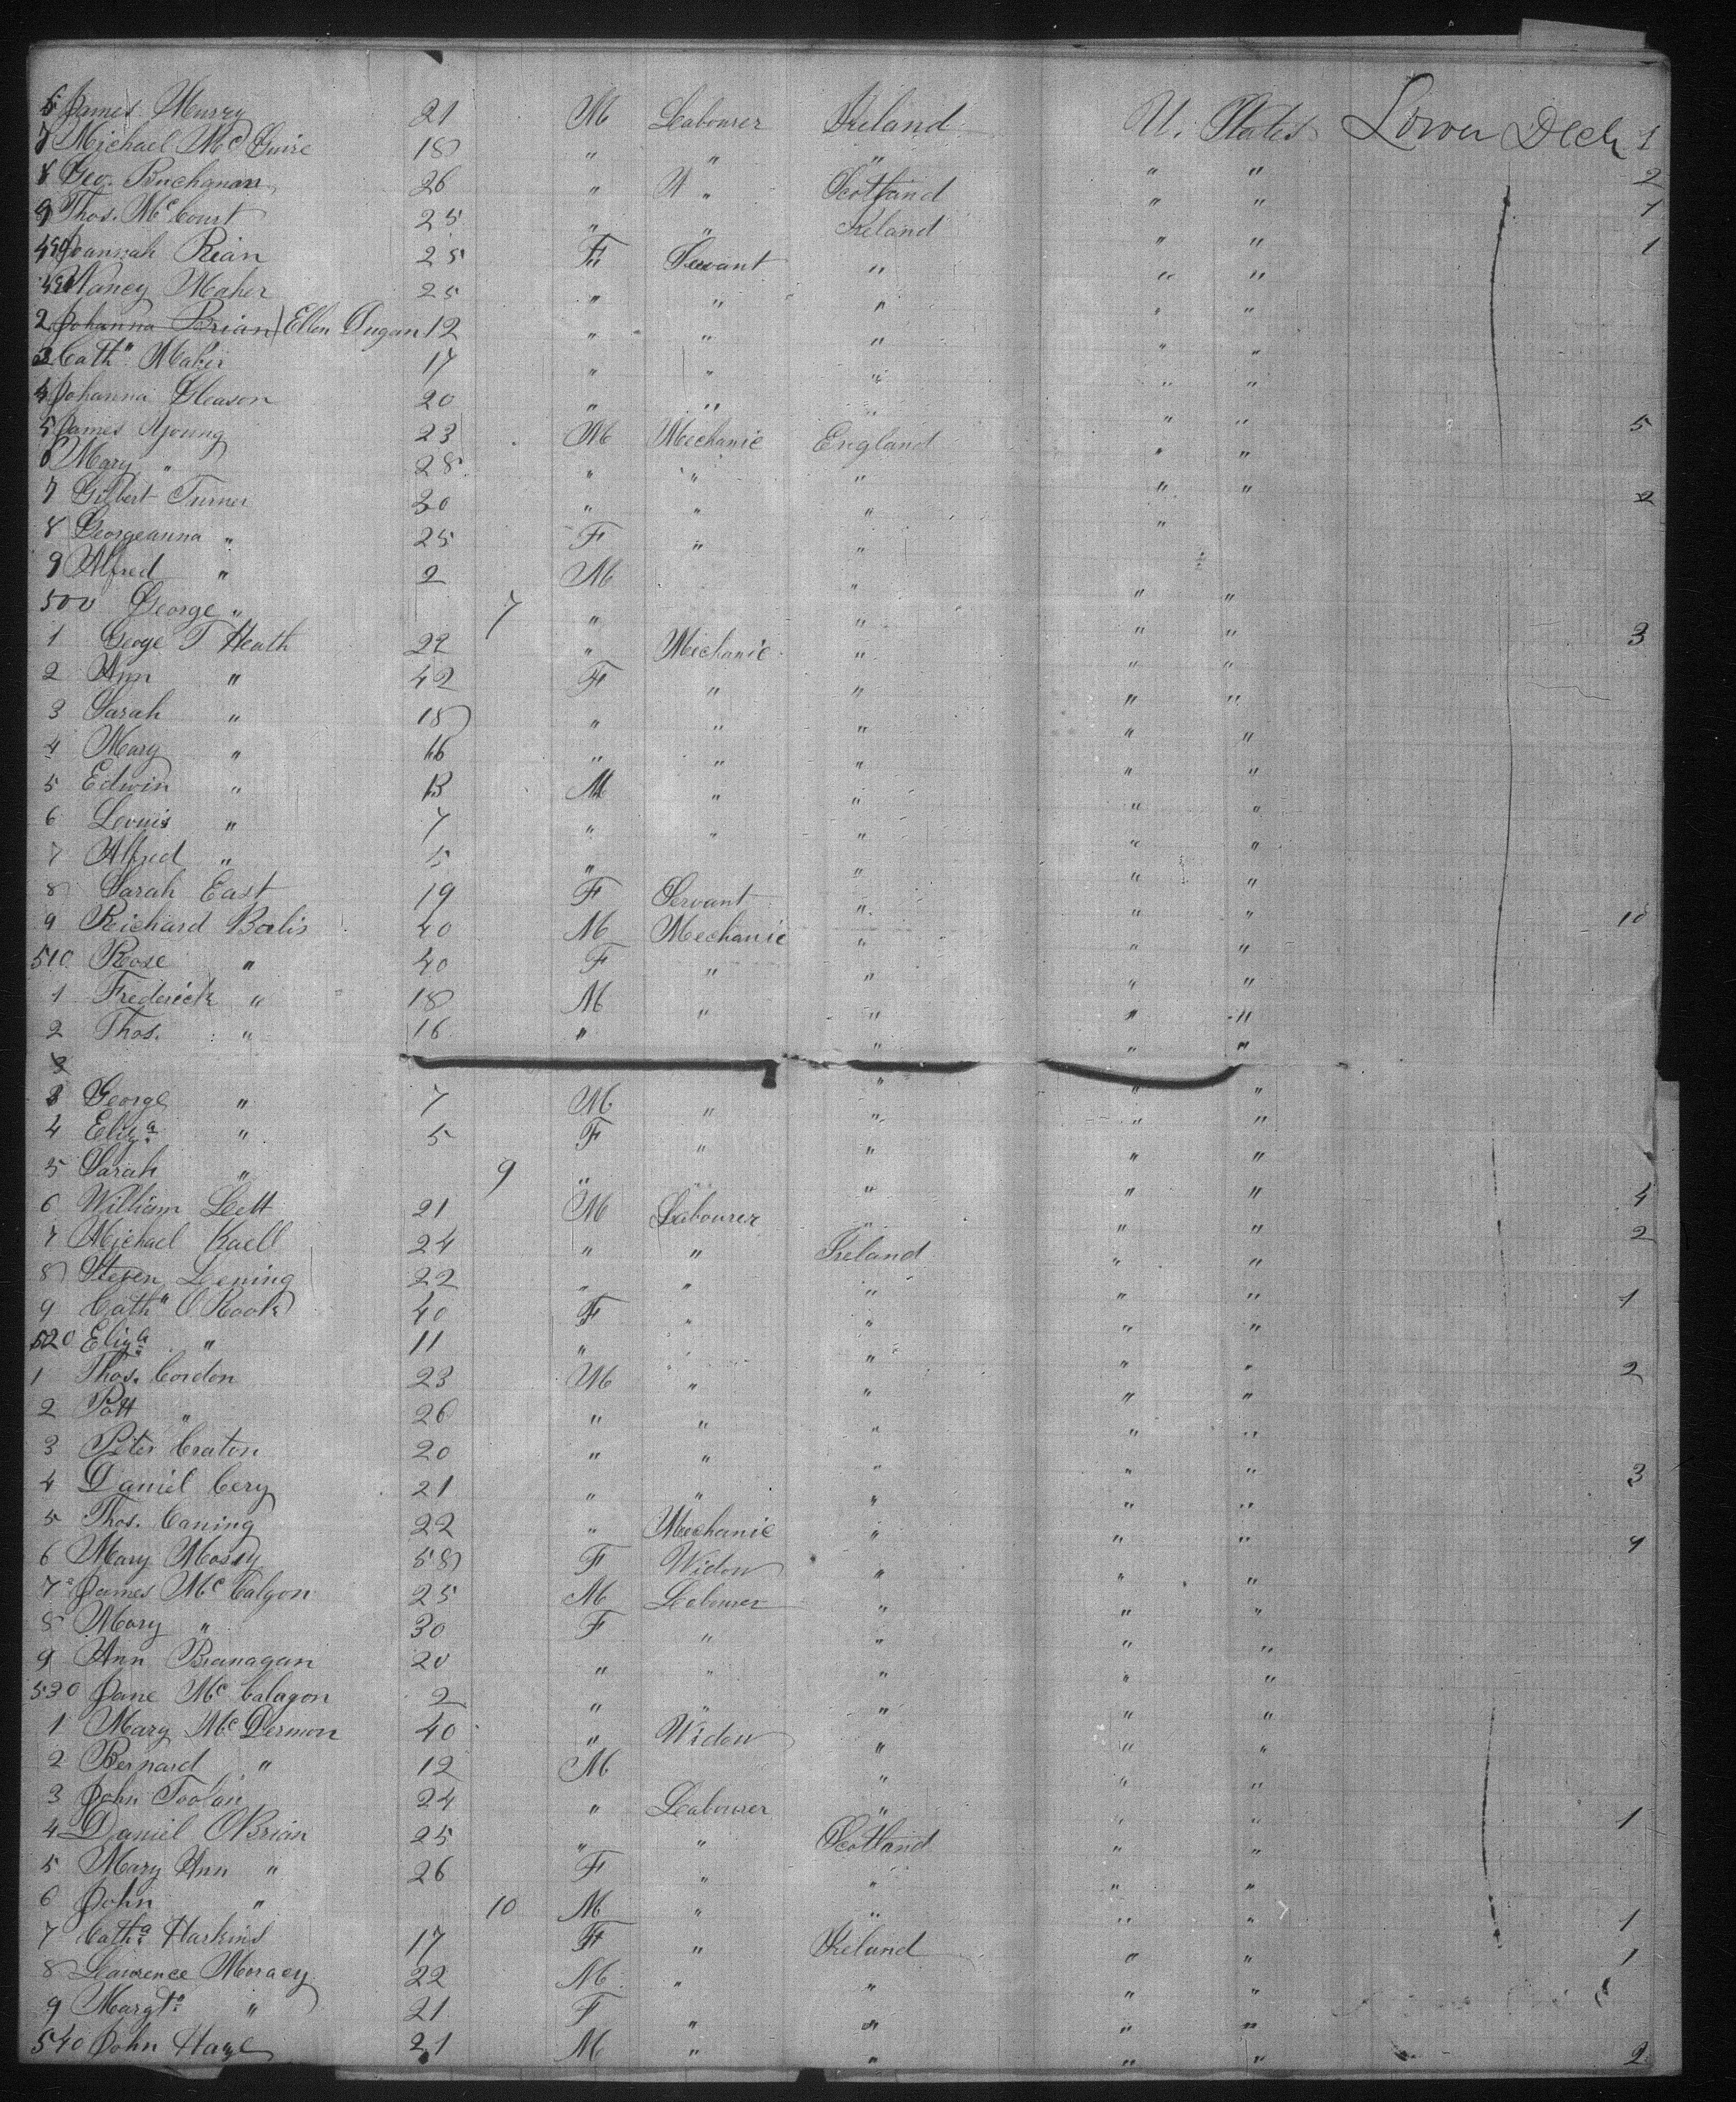 6 James Murry 21 M Labourer Ireland U. States Lower Deck 1
7 Michael Mc Guire 18 " " " " " 2
8 Geo. Buchanan 26 " " Scotland " " 7
9 Thos. Mc Court 25 " " Ireland " " 1
490 Joannah Rian 25 F Servant " " "
491 Nancy Maher 25 " " " " "
2 Johanna Brian / Ellen Dugan 12 " " " " "
3 Cath" Maher 17 " " " " "
4 Johanna Gleason 20 " " " " "
5 James Young 23 M Mechanic England " " 5
6 Mary " 28 " " " " "
7 Gilbert Turner 30 " " " " " 2
8 Georgeanna " 25 F " " "
9 Alfred " 2 M "
500 George " 7 " " " "
1 Geoge T Heath 22 " Mechanic " " " 3
2 Ann " 42 F " " " "
3 Sarah " 18 " " " " "
4 Mary " 16 " " " " "
5 Edwin " 13 M " " " "
6 Leouis " 7 " " " " "
7 Alfred " 5 " " " "
8 Sarah East 19 F Servant " " "
9 Richard Balis 40 M Mechanic " " " 10
510 Rose " 40 F " " " "
1 Frederick " 18 M " " " "
2 Thos. " 16 " " " "
3
3 George " 7 M " " " "
4 Eliza " 5 F " " " "
5 Sarah " 9 " " " "
6 William Lett 21 M Labourer " " " 4
7 Michael Kaell 24 " " Ireland " " 2
8 Steven Lening 22 " " " " " 1
9 Cath" O Rook 40 F " " " "
520 Eliza " 11 " " " " "
1 Thos. Cordon 23 M " " " " 2
2 Patt " 26 " " " " "
3 Peter Craton 20 " " " " "
4 Daniel Cery 21 " " " " " 3
5 Thos. Caning 22 " Mechanic " " "
6 Mary Mossy 58 F Widow " " " 9
7 James Mc Calgon 25 M Labourer " " "
8 Mary " 30 F " " " "
9 Ann Branagan 20 " " " " "
530 Jane Mc Calagon 2 " " " " "
1 Mary Mc Dermon 40 " Widow " " "
2 Bernard " 12 M " " "
3 John Toolan 24 " Labourer " " " 1
4 Daniel OBrian 25 " " Scotland " "
5 Mary Ann " 26 F " " " "
6 John " 10 M " " " " 1
7 Catha Harkins 17 F " Ireland " " 1
8 Lawrence Moracy 22 M " " " "
9 Margt " 21 F " " " "
540 John Haze 21 M " " " " 2